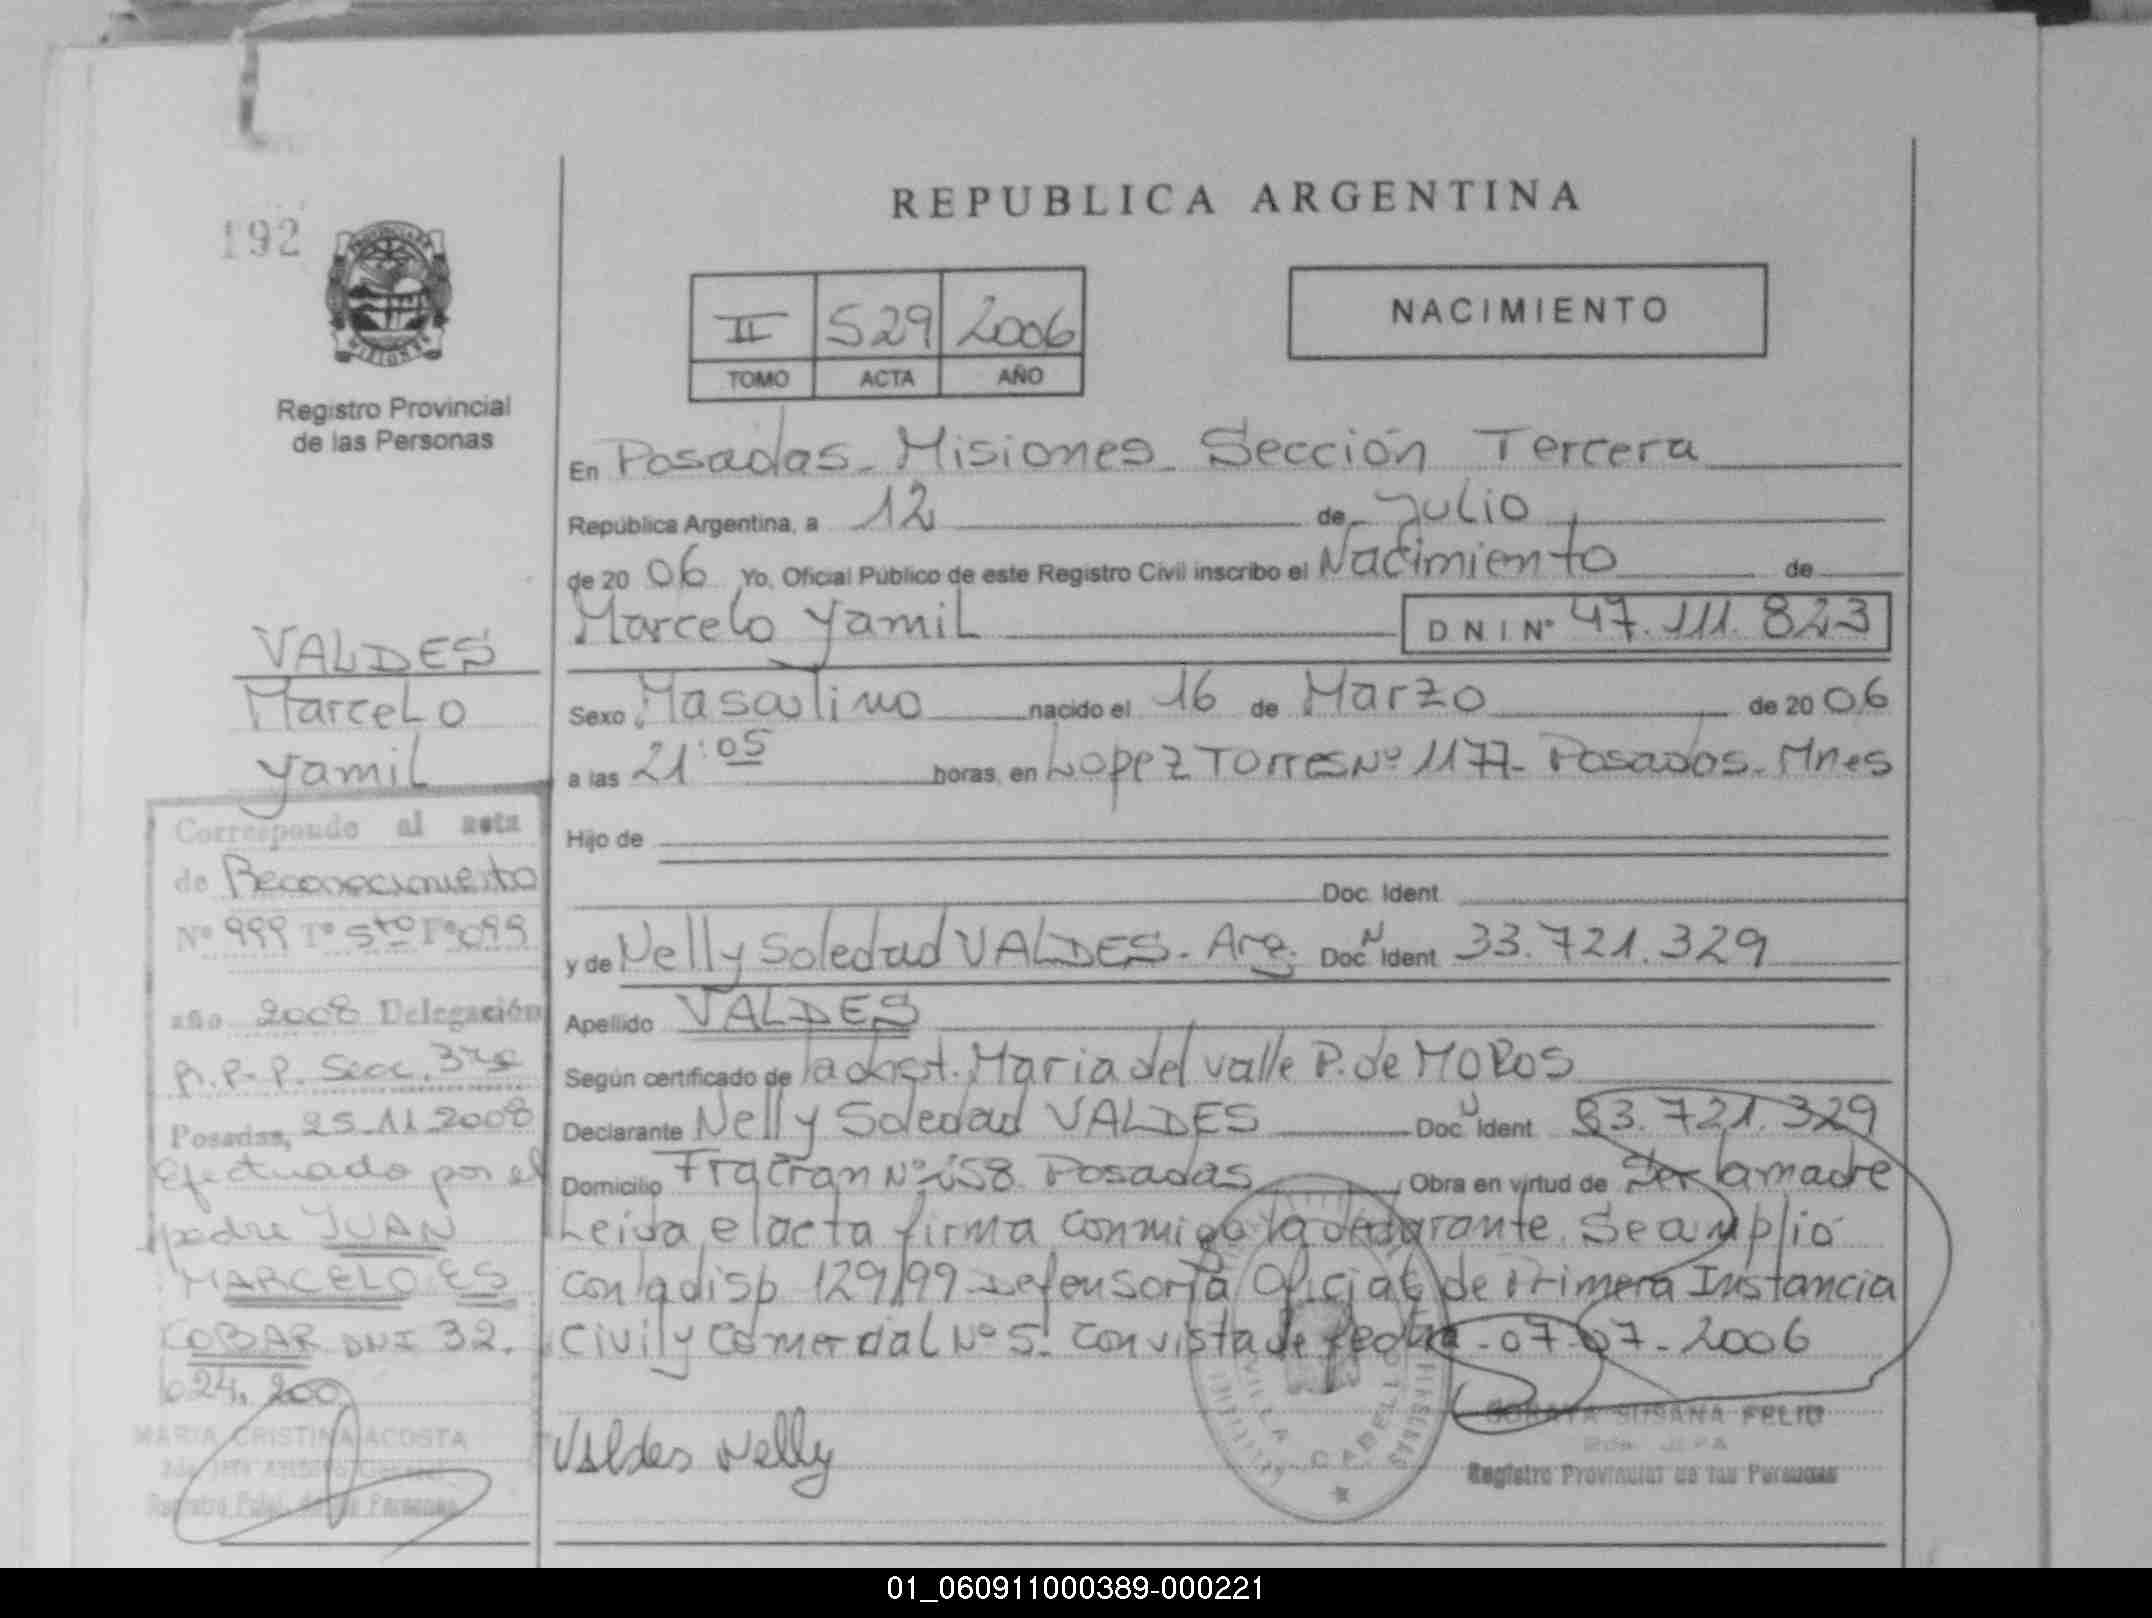 REPUBLICA ARGENTINA
192
PROVINCIA DE MISIONES
Registro Provincial
de las Personas
II 529 2006
TOMO ACTA AÑO
NACIMIENTO
En Posadas - Misiones - Sección Tercera
República Argentina, a 12 de Julio
de 20 06 Yo, Oficial Público de este Registro Civil inscribo el Nacimiento de
Marcelo Yamil DNI Nº 47.111.823
Sexo Masculino nacido el 16 de Marzo de 20 06
a las 21:05 horas, en Lopez Torres Nº 1177 - Posadas - Mnes
Hijo de
Doc. Ident.
y de Nelly Soledad VALDES - Arg. Doc. N Ident. 33.721.329
Apellido VALDES
Según certificado de la obst. Maria del Valle P. de MOROS
Declarante Nelly Soledad VALDES Doc. N Ident. 33.721.329
Domicilio Fracran Nº 158 Posadas Obra en virtud de Ser la madre
Leida el acta firma conmigo la declarante. Se amplió
con la disp 129/99 Defensoría Oficial de Primera Instancia
Civil y Comercial Nº 5. Con vista de fecha - 07-07-2006
Valdes Nelly
SORAYA SUSANA FELIU
2da. JEFA
Registro Provincial de las Personas
VILLA CABELLO
VALDES
Marcelo
Yamil
Corresponde al acta
de Reconocimiento
Nº 999 Tº 5to Fº 099
año 2008 Delegación
R.P.P. Secc. 3ra
Posadas, 25-11-2008
Efectuado por el
padre JUAN
MARCELO ES
COBAR DNI 32.
024.200
MARIA CRISTINA ACOSTA
2da. Jefe Archivo General
Registro Pcial. de las Personas
01_060911000389-000221